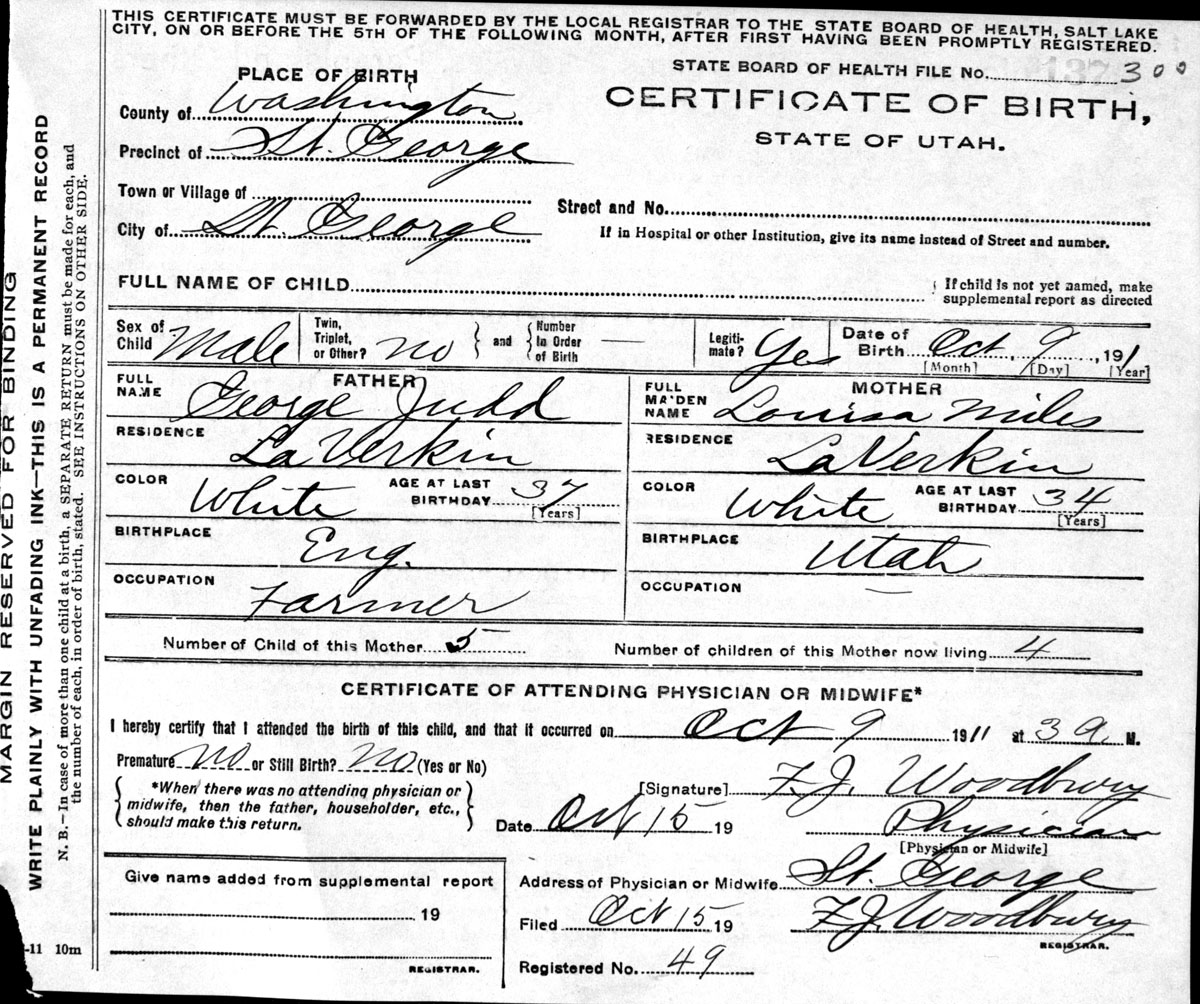 THIS CERTIFICATE MUST BE FORWARDED BY THE LOCAL REGISTRAR TO THE STATE BOARD OF HEALTH, SALT LAKE
CITY, ON OR BEFORE THE 5TH OF THE FOLLOWING MONTH, AFTER FIRST HAVING BEEN PROMPTLY REGISTERED.
STATE BOARD OF HEALTH FILE No. 300
CERTIFICATE OF BIRTH,
STATE OF UTAH.
PLACE OF BIRTH
County of Washington
Precinct of St. George
Town or Village of
City of St. George
Street and No.
If in Hospital or other Institution, give its name instead of Street and number.
FULL NAME OF CHILD
If child is not yet named, make
supplemental report as directed
Sex of Child Male
Twin, Triplet, or Other? no
and
Number In Order of Birth —
Legiti-mate? Yes
Date of Birth Oct. 9, 1911
[Month] [Day] [Year]
FATHER
FULL NAME George Judd
RESIDENCE LaVerkin
COLOR White AGE AT LAST BIRTHDAY 37
[Years]
BIRTHPLACE Eng.
OCCUPATION Farmer
MOTHER
FULL MAIDEN NAME Louisa Miles
RESIDENCE LaVerkin
COLOR White AGE AT LAST BIRTHDAY 34
[Years]
BIRTHPLACE Utah
OCCUPATION —
Number of Child of this Mother 5 Number of children of this Mother now living 4
CERTIFICATE OF ATTENDING PHYSICIAN OR MIDWIFE*
I hereby certify that I attended the birth of this child, and that it occurred on Oct 9 1911 at 3 a. M.
Premature no or Still Birth? no (Yes or No)
*When there was no attending physician or
midwife, then the father, householder, etc.,
should make this return.
[Signature] F.J. Woodbury
Date Oct 15 19 Physician
[Physician or Midwife]
Address of Physician or Midwife St. George
Filed Oct 15 19 F.J. Woodbury
REGISTRAR.
Registered No. 49
Give name added from supplemental report
19
REGISTRAR.
MARGIN RESERVED FOR BINDING
WRITE PLAINLY WITH UNFADING INK—THIS IS A PERMANENT RECORD
N. B.—In case of more than one child at a birth, a SEPARATE RETURN must be made for each, and
the number of each, in order of birth, stated. SEE INSTRUCTIONS ON OTHER SIDE.
-11 10m